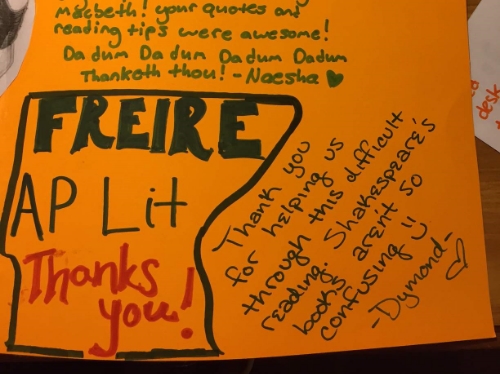 Macbeth! your quotes and
reading tips were awesome!
Da dum Da dum Da dum Dadum
Thanketh thou! - Naesha
FREIRE
AP Lit
Thanks
you!
Thank you
for helping us
through this difficult
reading. Shakespeare's
books aren't so
confusing
-Dymond-
desk